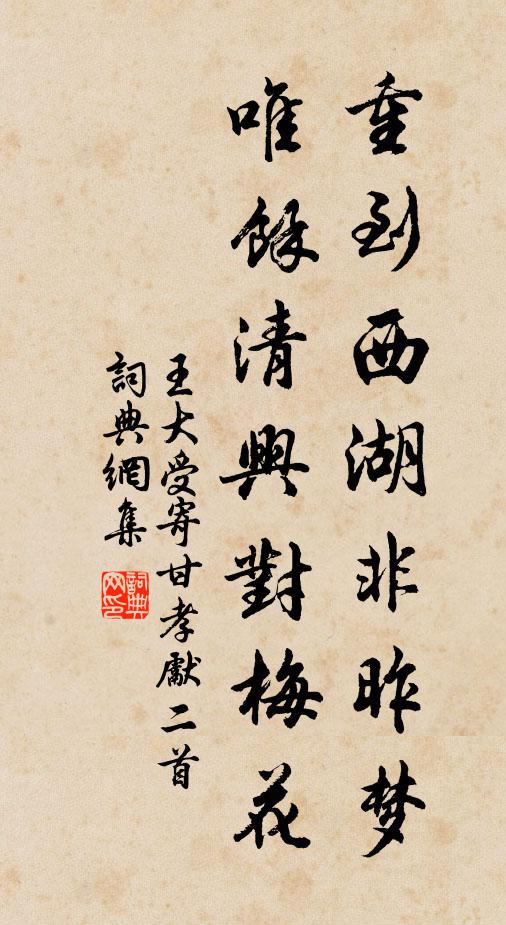 重到西湖非昨梦
唯餘清興對梅花
王大受寄甘孝獻二首
詞典網集
詞典
网印